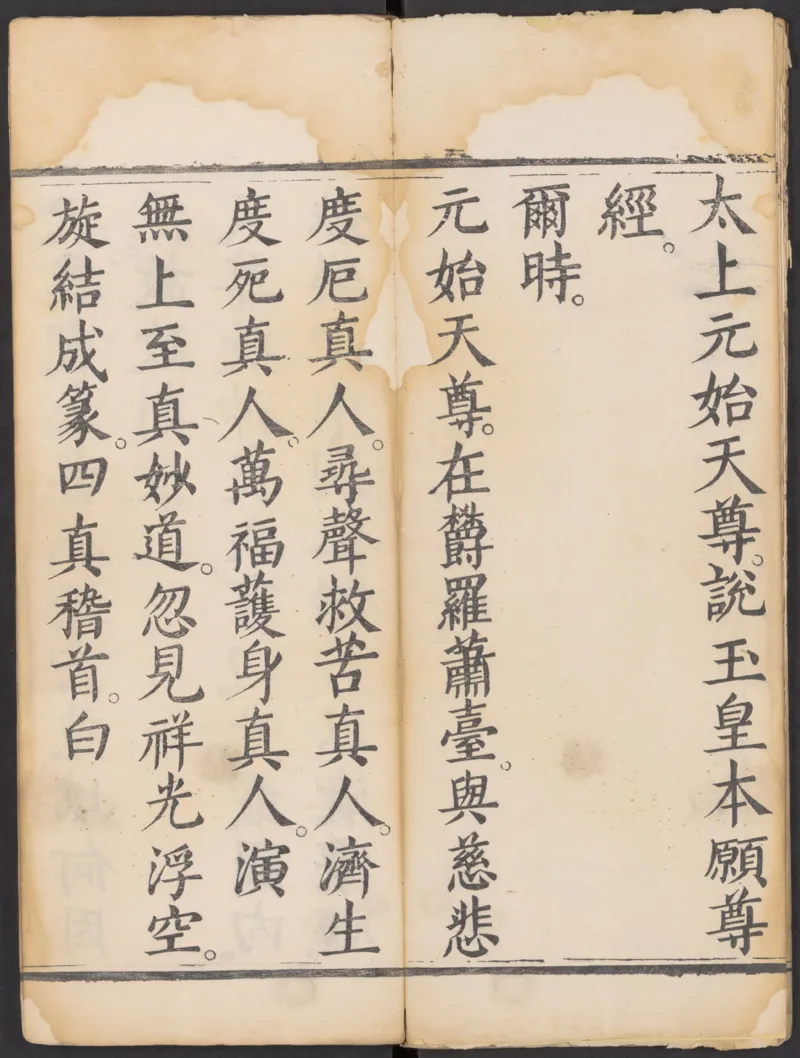 太上元始天尊。說玉皇本願尊
經。
爾時。
元始天尊。在欝羅蕭臺。與慈悲
度厄真人。尋聲救苦真人。濟生
度死真人。萬福護身真人。演
無上至真妙道。忽見祥光浮空。
旋結成篆。四真稽首。白